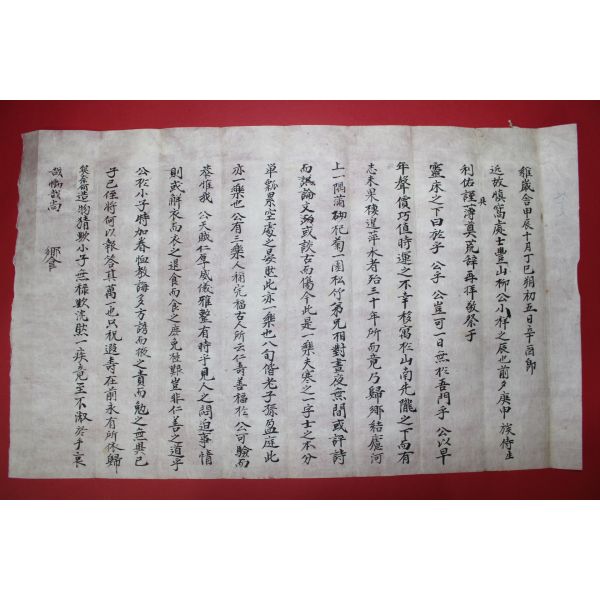 維歲舍甲辰十月丁巳朔初五日辛酉卽
近故愼窩處士豐山柳公小祥之辰也前夕庚申族侍生
利佑謹具薄奠荒辭再拜敬祭于
靈床之下曰於乎 公乎 公豈可一日無於吾門乎 公以早
年聲價巧值時運之不幸移寓松山南先隴之下而有
志未果棲遑萍水者殆三十年所而竟乃歸鄉結廬河
上一隅蒲砌杞菊一園松竹弟兄相對晝夜無間或評詩
而議論文酒或談古而傷今此是一樂夫寒之一字士之本分
單瓢累空處之晏然此亦一樂也八旬偕老子孫盈庭此
亦一樂也公有三樂人稱完福古人所云仁壽善福於公可驗而
恭惟我 公天賦仁厚威儀雅整有時乎見人之悶迫事情
則或解衣而衣之退食而食之庶免極艱豈非仁善之道乎
公於小子特加眷恤教誨多方誘而掖之責而勉之無異己
子已任將何以報答其萬一也只祝遐壽在前永有所依歸
造物猜歟小子無祿歟浣然一疾竟至不淑於乎哀
哉痛哉尚 饗